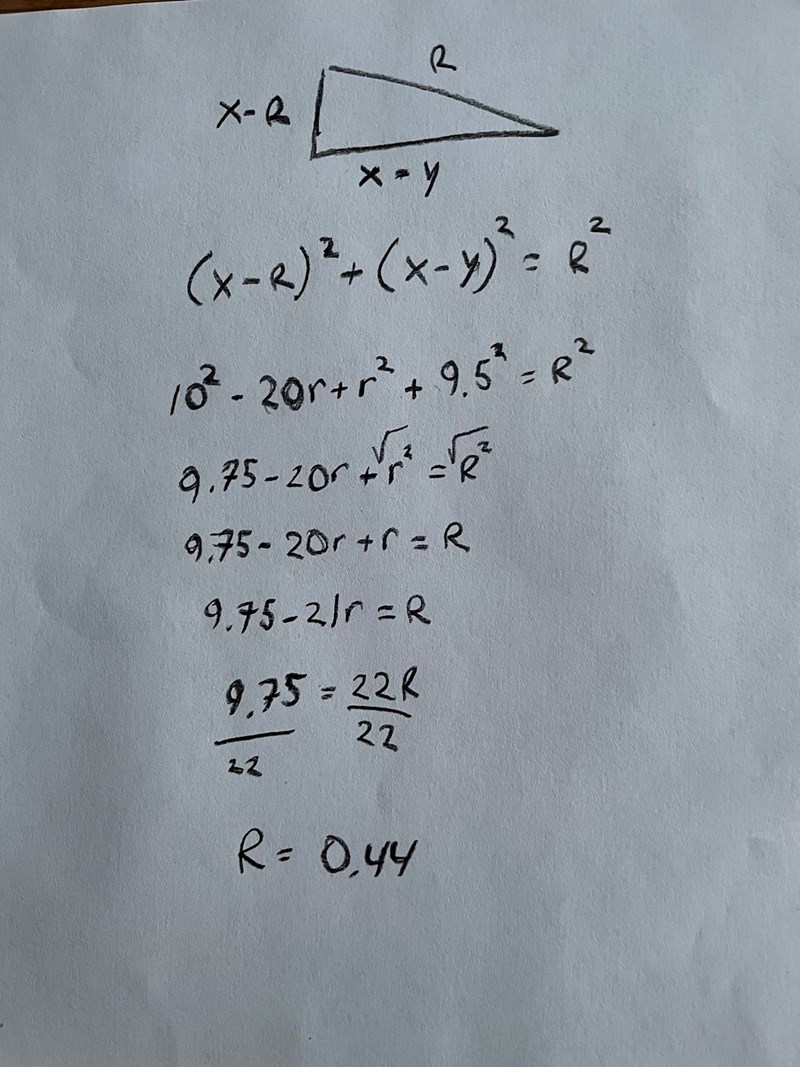 R
x-R
x-y
(x-R)²+(x-y)²=R²
10²-20r+r²+9.5²=R²
9.75-20r+√r²=√R²
9.75-20r+r=R
9.75-21r=R
9.75/22=22R/22
R=0.44